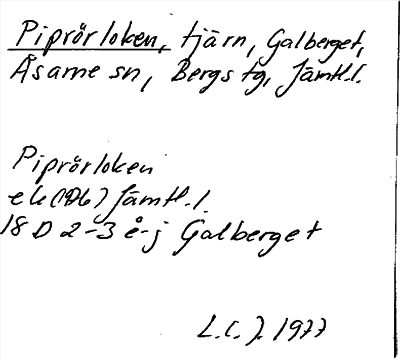 Piprörloken, tjärn, Galberget,
Åsarne sn, Bergs tg, Jämtl.l.
Piprörloken
ek(Db) Jämtl.l.
18 D 2-3 e-j Galberget
L.C.J. 1977